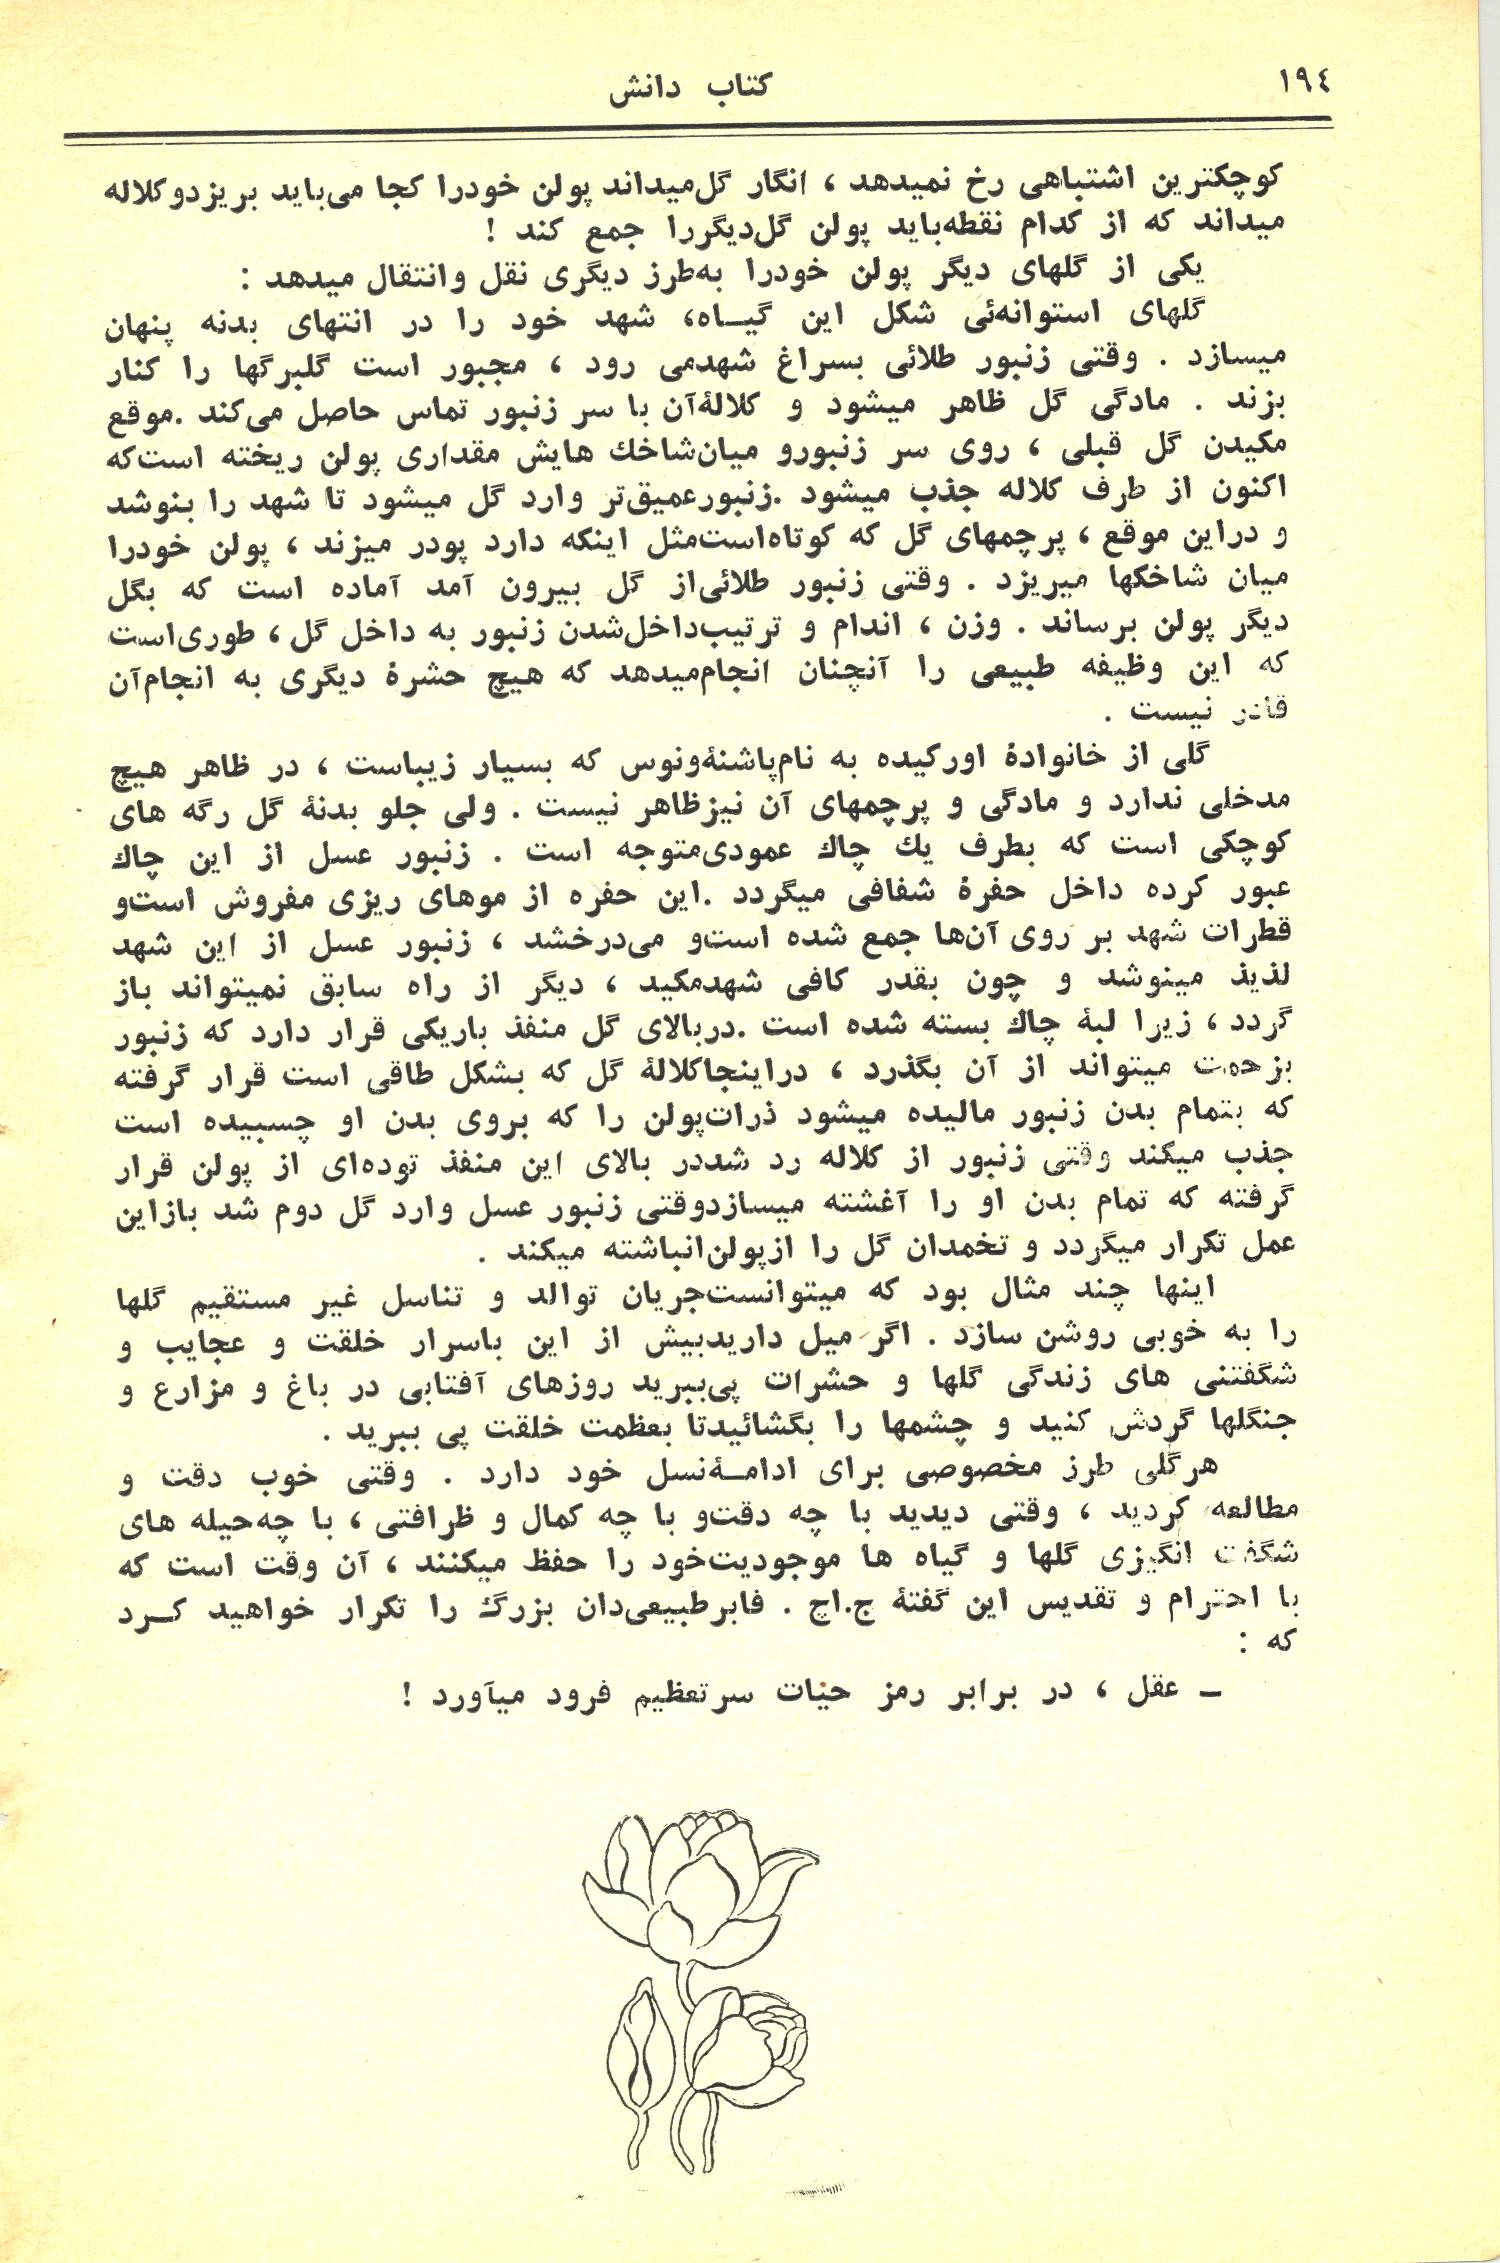 ١٩٤
کتاب دانش
کوچکترین اشتباهی رخ نمیدهد ، انگار گل‌میداند پولن خودرا کجا می‌باید بریزدوکلاله
میداند که از کدام نقطه‌باید پولن گل‌دیگررا جمع کند !
یکی از گلهای دیگر پولن خودرا به‌طرز دیگری نقل وانتقال میدهد :
گلهای استوانه‌ئی شکل این گیـاه، شهد خود را در انتهای بدنه پنهان
میسازد . وقتی زنبور طلائی بسراغ شهدمی رود ، مجبور است گلبرگها را کنار
بزند . مادگی گل ظاهر میشود و کلالهٔ‌آن با سر زنبور تماس حاصل می‌کند .موقع
مکیدن گل قبلی ، روی سر زنبورو میان‌شاخك هایش مقداری پولن ریخته است‌که
اکنون از طرف کلاله جذب میشود .زنبورعمیق‌تر وارد گل میشود تا شهد را بنوشد
و دراین موقع ، پرچمهای گل که کوتاه‌است‌مثل اینکه دارد پودر میزند ، پولن خودرا
میان شاخکها میریزد . وقتی زنبور طلائی‌از گل بیرون آمد آماده است که بگل
دیگر پولن برساند . وزن ، اندام و ترتیب‌داخل‌شدن زنبور به داخل گل ، طوری‌است
که این وظیفه طبیعی را آنچنان انجام‌میدهد که هیچ حشرهٔ دیگری به انجام‌آن
قادر نیست .
گلی از خانوادهٔ اورکیده به نام‌پاشنهٔ‌ونوس که بسیار زیباست ، در ظاهر هیچ
مدخلی ندارد و مادگی و پرچمهای آن نیزظاهر نیست . ولی جلو بدنهٔ گل رگه های
کوچکی است که بطرف یك چاك عمودی‌متوجه است . زنبور عسل از این چاك
عبور کرده داخل حفرهٔ شفافی میگردد .این حفره از موهای ریزی مفروش است‌و
قطرات شهد بر روی آن‌ها جمع شده است‌و می‌درخشد ، زنبور عسل از این شهد
لذیذ مینوشد و چون بقدر کافی شهدمکید ، دیگر از راه سابق نمیتواند باز
گردد ، زیرا لبهٔ چاك بسته شده است .دربالای گل منفذ باریکی قرار دارد که زنبور
بزحمت میتواند از آن بگذرد ، دراینجاکلالهٔ گل که بشکل طاقی است قرار گرفته
که بتمام بدن زنبور مالیده میشود ذرات‌پولن را که بروی بدن او چسبیده است
جذب میکند وقتی زنبور از کلاله رد شددر بالای این منفذ توده‌ای از پولن قرار
گرفته که تمام بدن او را آغشته میسازدوقتی زنبور عسل وارد گل دوم شد بازاین
عمل تکرار میگردد و تخمدان گل را ازپولن‌انباشته میکند .
اینها چند مثال بود که میتوانست‌جریان توالد و تناسل غیر مستقیم گلها
را به خوبی روشن سازد . اگر میل داریدبیش از این باسرار خلقت و عجایب و
شگفتنی های زندگی گلها و حشرات پی‌ببرید روزهای آفتابی در باغ و مزارع و
جنگلها گردش کنید و چشمها را بگشائیدتا بعظمت خلقت پی ببرید .
هرگلی طرز مخصوصی برای ادامـهٔ‌نسل خود دارد . وقتی خوب دقت و
مطالعه کردید ، وقتی دیدید با چه دقت‌و با چه کمال و ظرافتی ، با چه‌حیله های
شگفت انگیزی گلها و گیاه ها موجودیت‌خود را حفظ میکنند ، آن وقت است که
با احترام و تقدیس این گفتهٔ ج.اچ . فابرطبیعی‌دان بزرگ را تکرار خواهید کـرد
که :
ـ عقل ، در برابر رمز حیات سرتعظیم فرود میآورد !